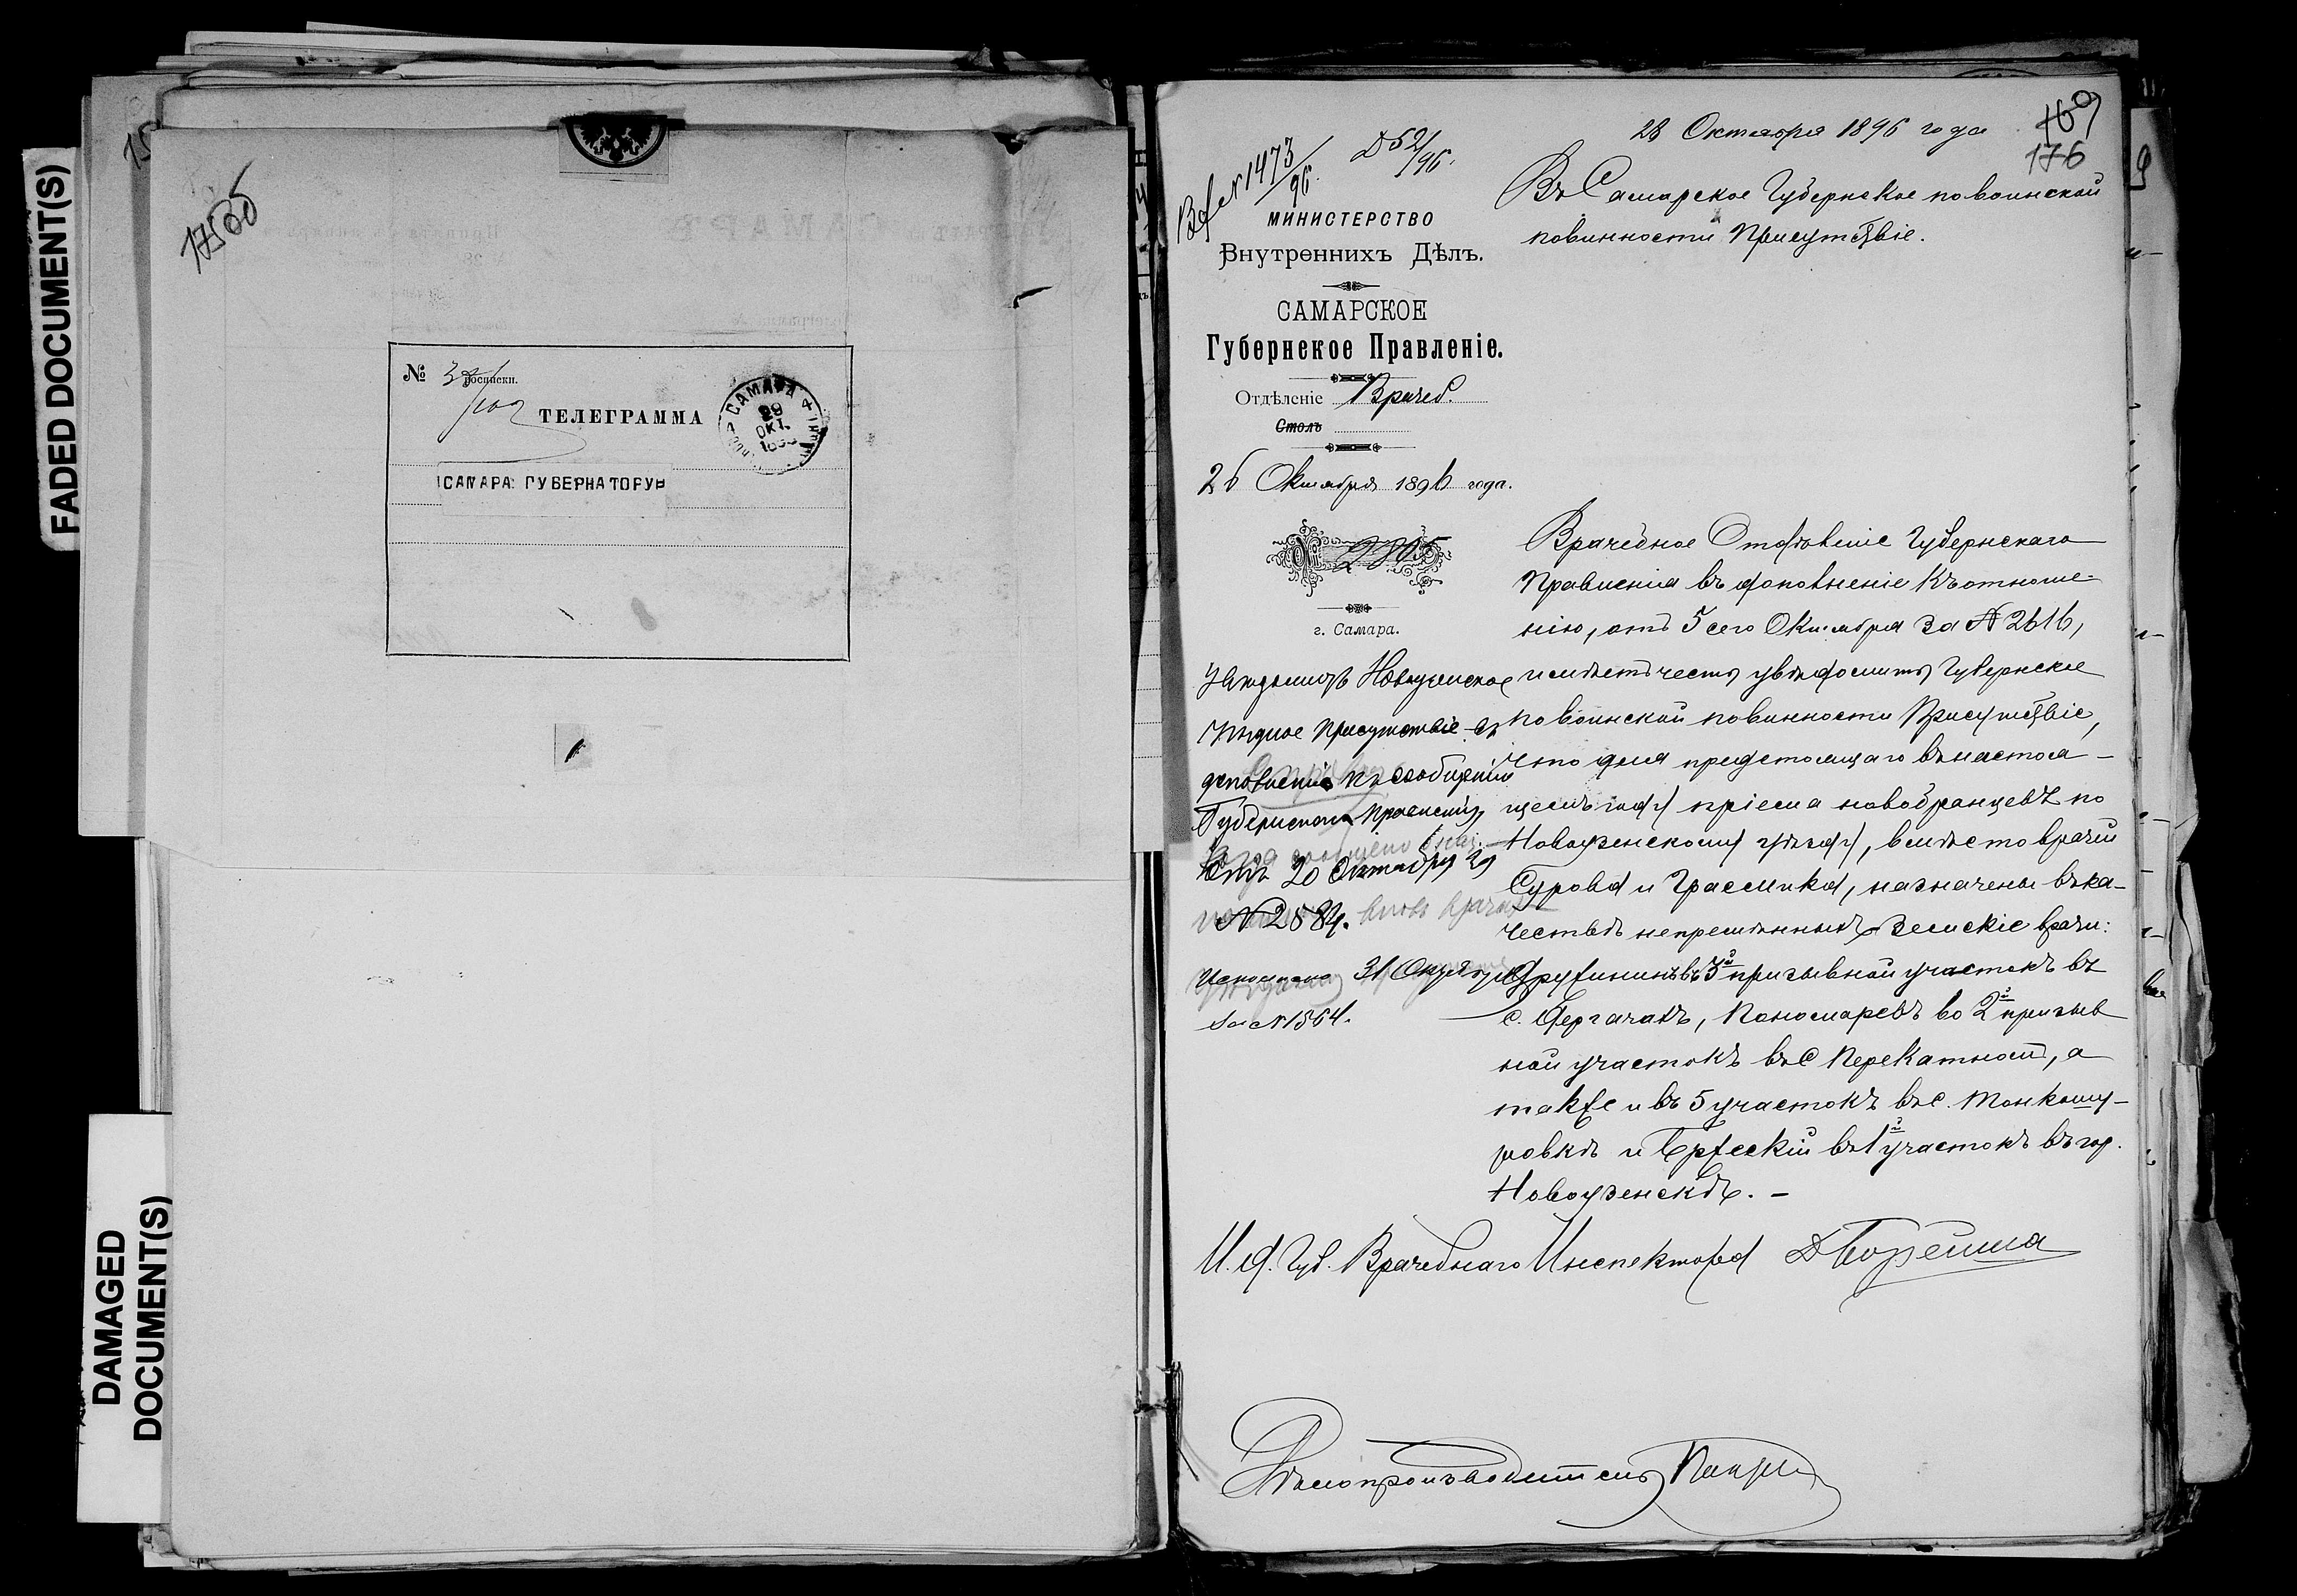 175об
№
росписки.
ТЕЛЕГРАММА
САМАРА
29
ОКТ.
САМАРА ГУБЕРНАТОРУ
28 Октября 1896 года
169
176
Вх № 1473/96.
Д 52/96.
Въ Самарское Губернское по воинской
повинности Присутствіе.
МИНИСТЕРСТВО
Внутреннихъ Дѣлъ.
САМАРСКОЕ
Губернское Правленіе.
Отдѣленіе Врачеб.
Столъ
26 Октября 1896 года.
№ 2805
г. Самара.
Врачебное Отдѣленіе Губернскаго
Правленія въ дополненіе къ отноше-
нію, отъ 5 сего Октября за № 2616,
имѣетъ честь увѣдомить Губернское
по воинской повинности Присутствіе,
что для предстоящаго въ настоя-
щемъ году пріема новобранцевъ по
Новоузенскому уѣзду, вмѣсто врачей
Сурова и Грасмика, назначены въ ка-
чествѣ непремѣнныхъ земскіе врачи:
Дружининъ въ 3й призывной участокъ въ
с. Дергачахъ, Пономаревъ во 2й призыв
ной участокъ въ с Перекатномъ, а
также и въ 5 участокъ въ с. Тонкошу-
ровкѣ и Бржескій въ 1й участокъ въ гор.
Новоузенскѣ. –
Увѣдомить Новоузенское
Уѣздное Присутствіе въ
дополненіе къ сообщенію
Губернскаго Правленія,
отъ 20 Октября за
№ 2884.
Исполнено 31 Октября
за № 1564.
И. д. Губ. Врачебнаго Инспектора
Дѣлопроизводитель